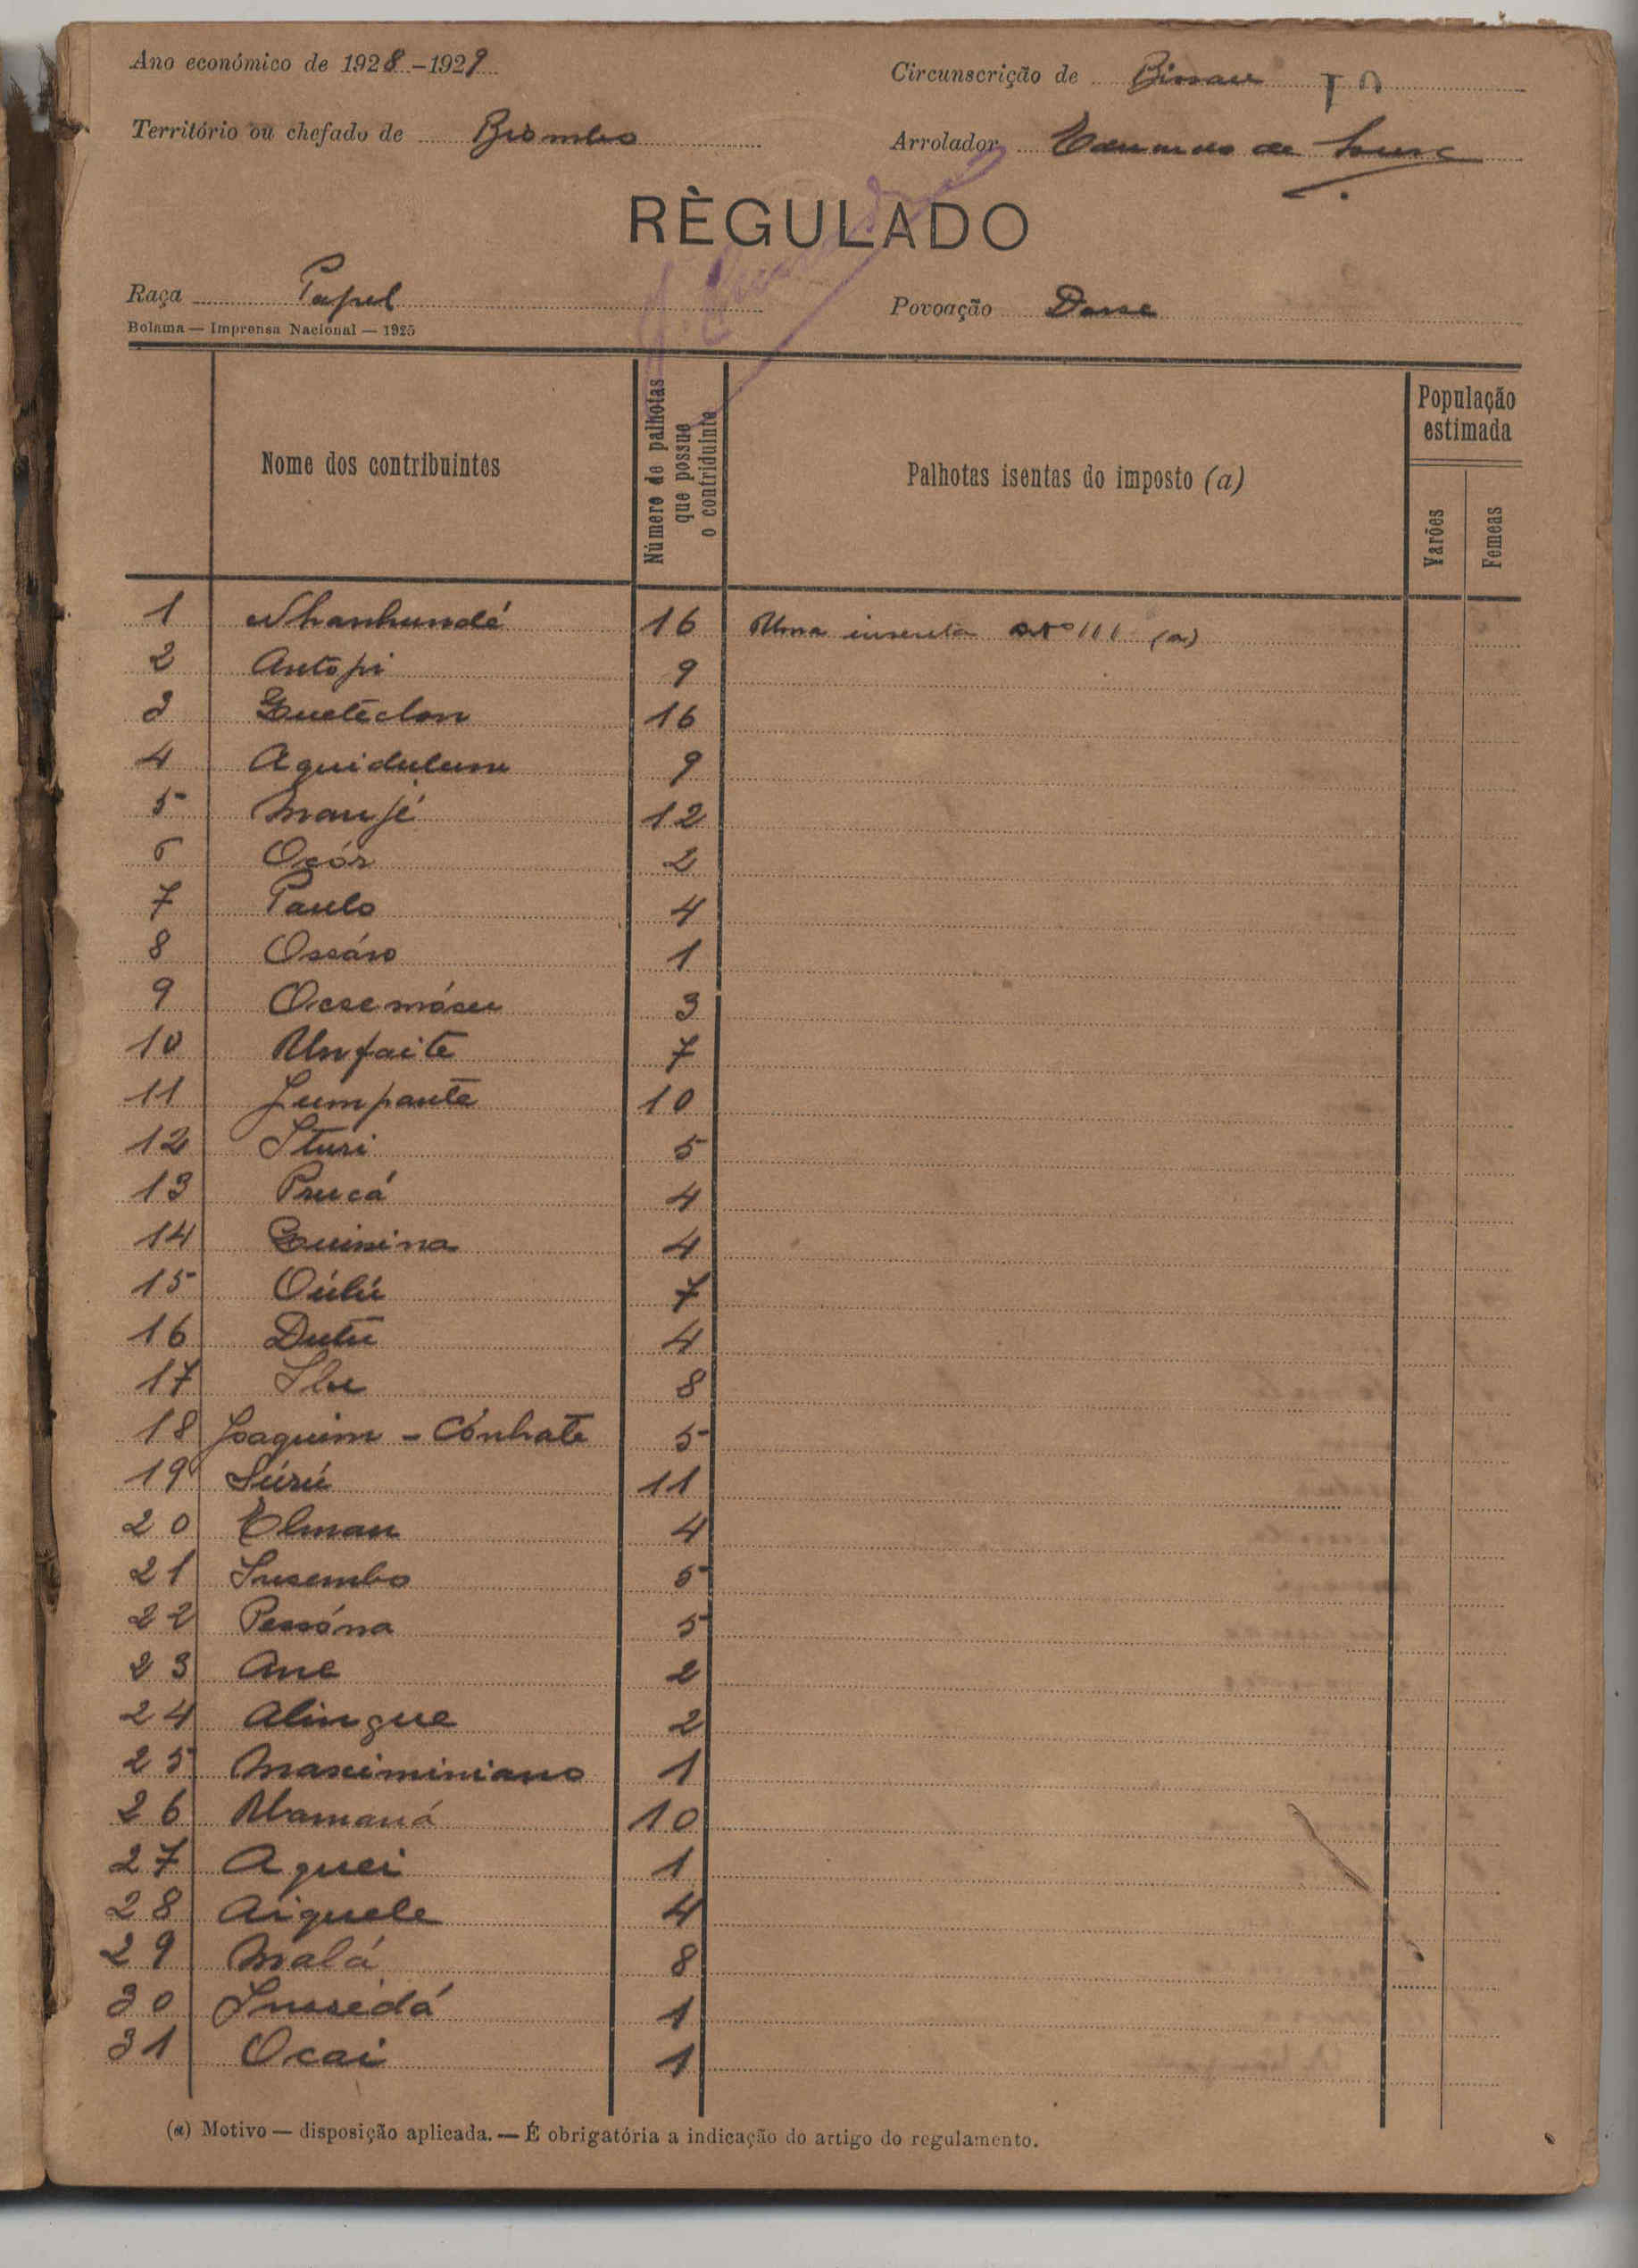 Ano económico de 1928-1929
Circunscrição de Bissau
Território ou chefado de Biombo
Arrolador de Sousa
RÈGULADO
Raça Papel
Povoação Dorse
Bolama — Imprensa Nacional — 1925
Nome dos contribuintes
Número de palhotas que possue o contriduinte
Palhotas isentas do imposto (a)
População estimada
Varões
Femeas
1 Nhanhundé 16 Uma insenta artº 111 (a)
2 Antopi 9
3 16
4 Aquidulum 9
5 Manjé 12
6 Oçór 2
7 Paulo 4
8 Ossáro 1
9 3
10 Unfaite 7
11 Jumpante 10
12 Ituri 5
13 Prucá 4
14 Quinina 4
15 Oúlú 7
16 Dutu 4
17 8
18 Joaquim - Cónhate 5
19 Súrú 11
20 Elman 4
21 Insembo 5
22 Pessóna 5
23 Ane 2
24 Alingue 2
25 Maximiniano 1
26 Umamaná 10
27 Aquei 1
28 Aiquele 4
29 Malá 8
30 Inssedá 1
31 Ocai 1
(a) Motivo — disposição aplicada. — É obrigatória a indicação do artigo do regulamento.